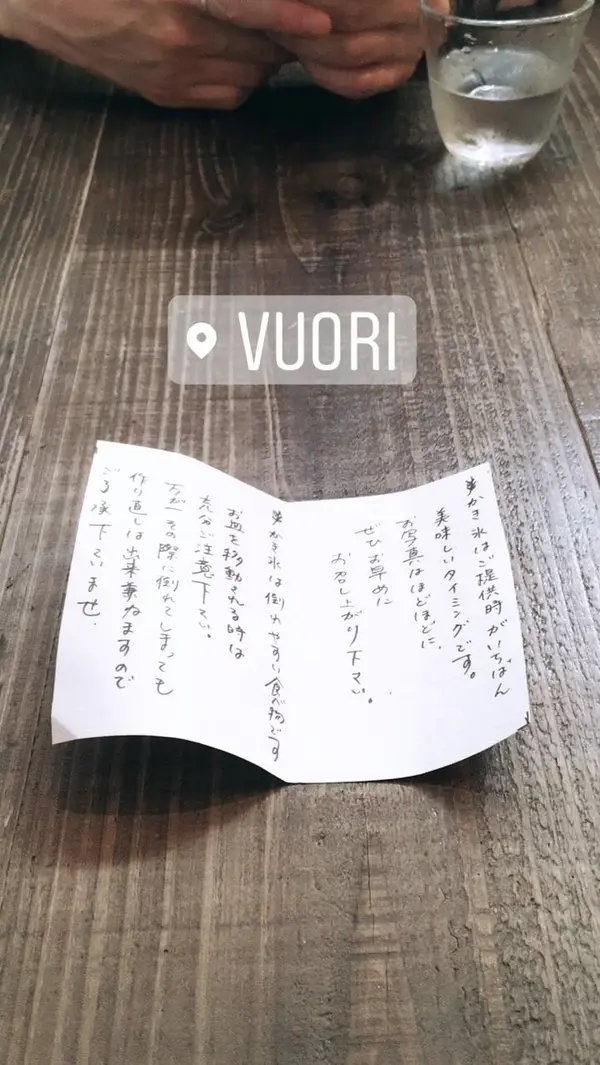 VUORI
※かき氷はご提供時がいちばん
美味しいタイミングです。
お写真はほどほどに、
ぜひお早めに
お召し上がり下さい。
※かき氷は倒れやすい食べ物です
お皿を移動される時は
充分ご注意下さい。
万が一その際に倒れてしまっても
作り直しは出来兼ねますので
ご了承下さいませ.